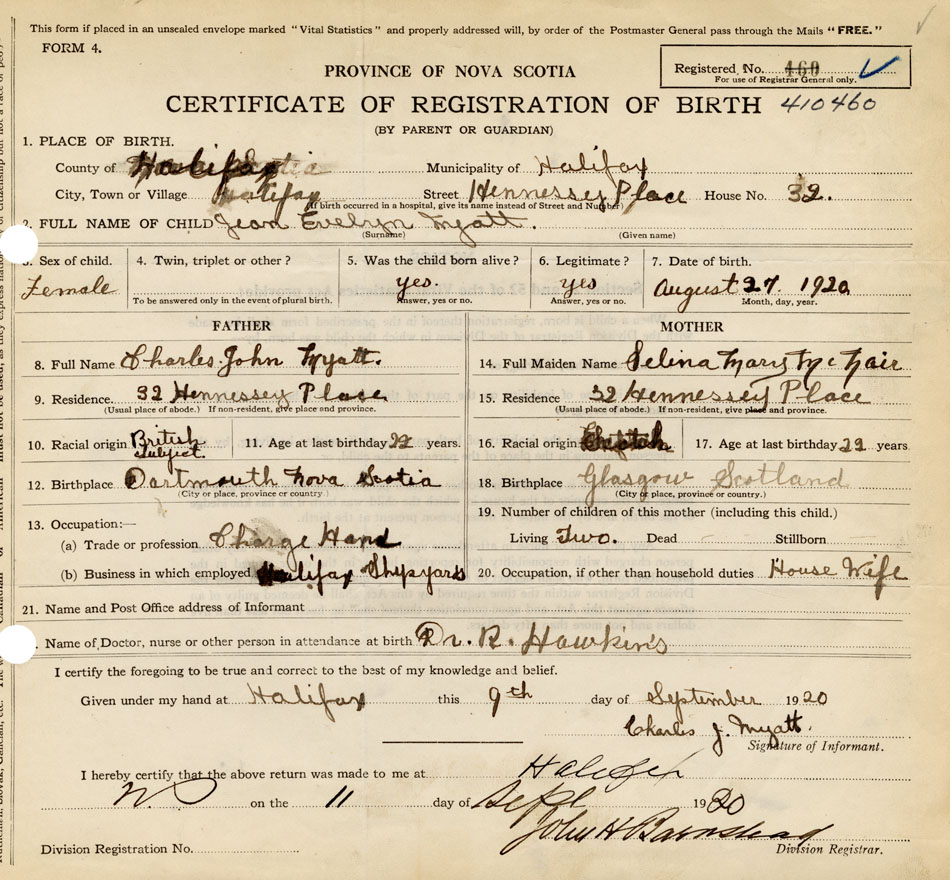 This form if placed in an unsealed envelope marked "Vital Statistics" and properly addressed will, by order of the Postmaster General pass through the Mails "FREE."
FORM 4.
PROVINCE OF NOVA SCOTIA
Registered, No. 460
For use of Registrar General only.
CERTIFICATE OF REGISTRATION OF BIRTH 410460
(BY PARENT OR GUARDIAN)
1. PLACE OF BIRTH.
County of Halifax Municipality of Halifax
City, Town or Village Halifax Street Hennessey Place House No. 32.
(If birth occurred in a hospital, give its name instead of Street and Number)
2. FULL NAME OF CHILD Jean Evelyn Myatt.
(Surname) (Given name)
3. Sex of child. 4. Twin, triplet or other? 5. Was the child born alive? 6. Legitimate? 7. Date of birth.
Female yes. yes August 27. 1920
To be answered only in the event of plural birth. Answer, yes or no. Answer, yes or no. Month, day, year.
FATHER MOTHER
8. Full Name Charles John Myatt. 14. Full Maiden Name Selina Mary McNair
9. Residence. 32 Hennessey Place 15. Residence 32 Hennessey Place
(Usual place of abode.) If non-resident, give place and province. (Usual place of abode.) If non-resident, give place and province.
10. Racial origin British Subject. 11. Age at last birthday 22 years. 16. Racial origin 17. Age at last birthday 22 years
12. Birthplace Dartmouth Nova Scotia 18. Birthplace Glasgow Scotland
(City or place, province or country.) (City or place, province or country.)
13. Occupation:— 19. Number of children of this mother (including this child.)
(a) Trade or profession Charge Hand Living Two. Dead Stillborn
(b) Business in which employed Halifax Shipyards 20. Occupation, if other than household duties House Wife
21. Name and Post Office address of Informant
Name of Doctor, nurse or other person in attendance at birth Dr. R. Hawkins
I certify the foregoing to be true and correct to the best of my knowledge and belief.
Given under my hand at Halifax this 9th day of September 1920
Charles J. Myatt.
Signature of Informant.
I hereby certify that the above return was made to me at Halifax
NS on the 11 day of Sept 1920
John H Barnstead
Division Registration No. Division Registrar.